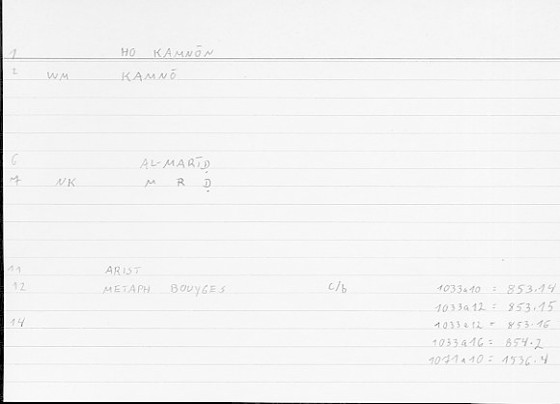 1 HO KAMNŌN
2 WM KAMNŌ
6 AL-MARĪḌ
7 NK M R Ḍ
11 ARIST
12 METAPH BOUYGES c/b 1033a10 = 853.14
1033a12 = 853.15
14 1033a12 = 853.16
1033a16 = 854.2
1071a10 = 1536.4